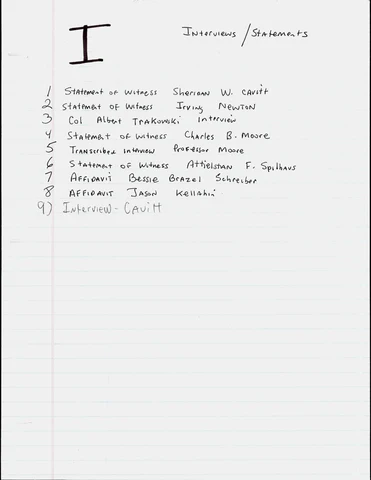 I
Interviews / Statements
1 Statement of Witness Sheridan W. Cavitt
2 Statement of Witness Irving Newton
3 Col Albert Trakowski Interview
4 Statement of Witness Charles B. Moore
5 Transcribed Interview Professor Moore
6 Statement of Witness Athelstan F. Spilhaus
7 Affidavit Bessie Brazel Schreiber
8 Affidavit Jason Kellahin
9) Interview - Cavitt